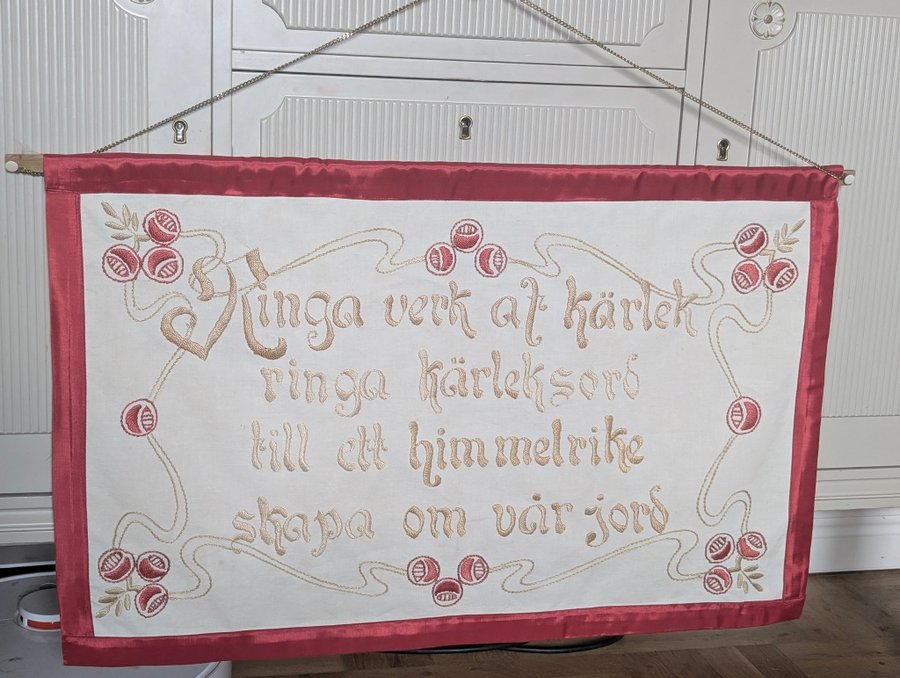 Ringa verk af kärlek
ringa kärleksord
till ett himmelrike
skapa om vår jord